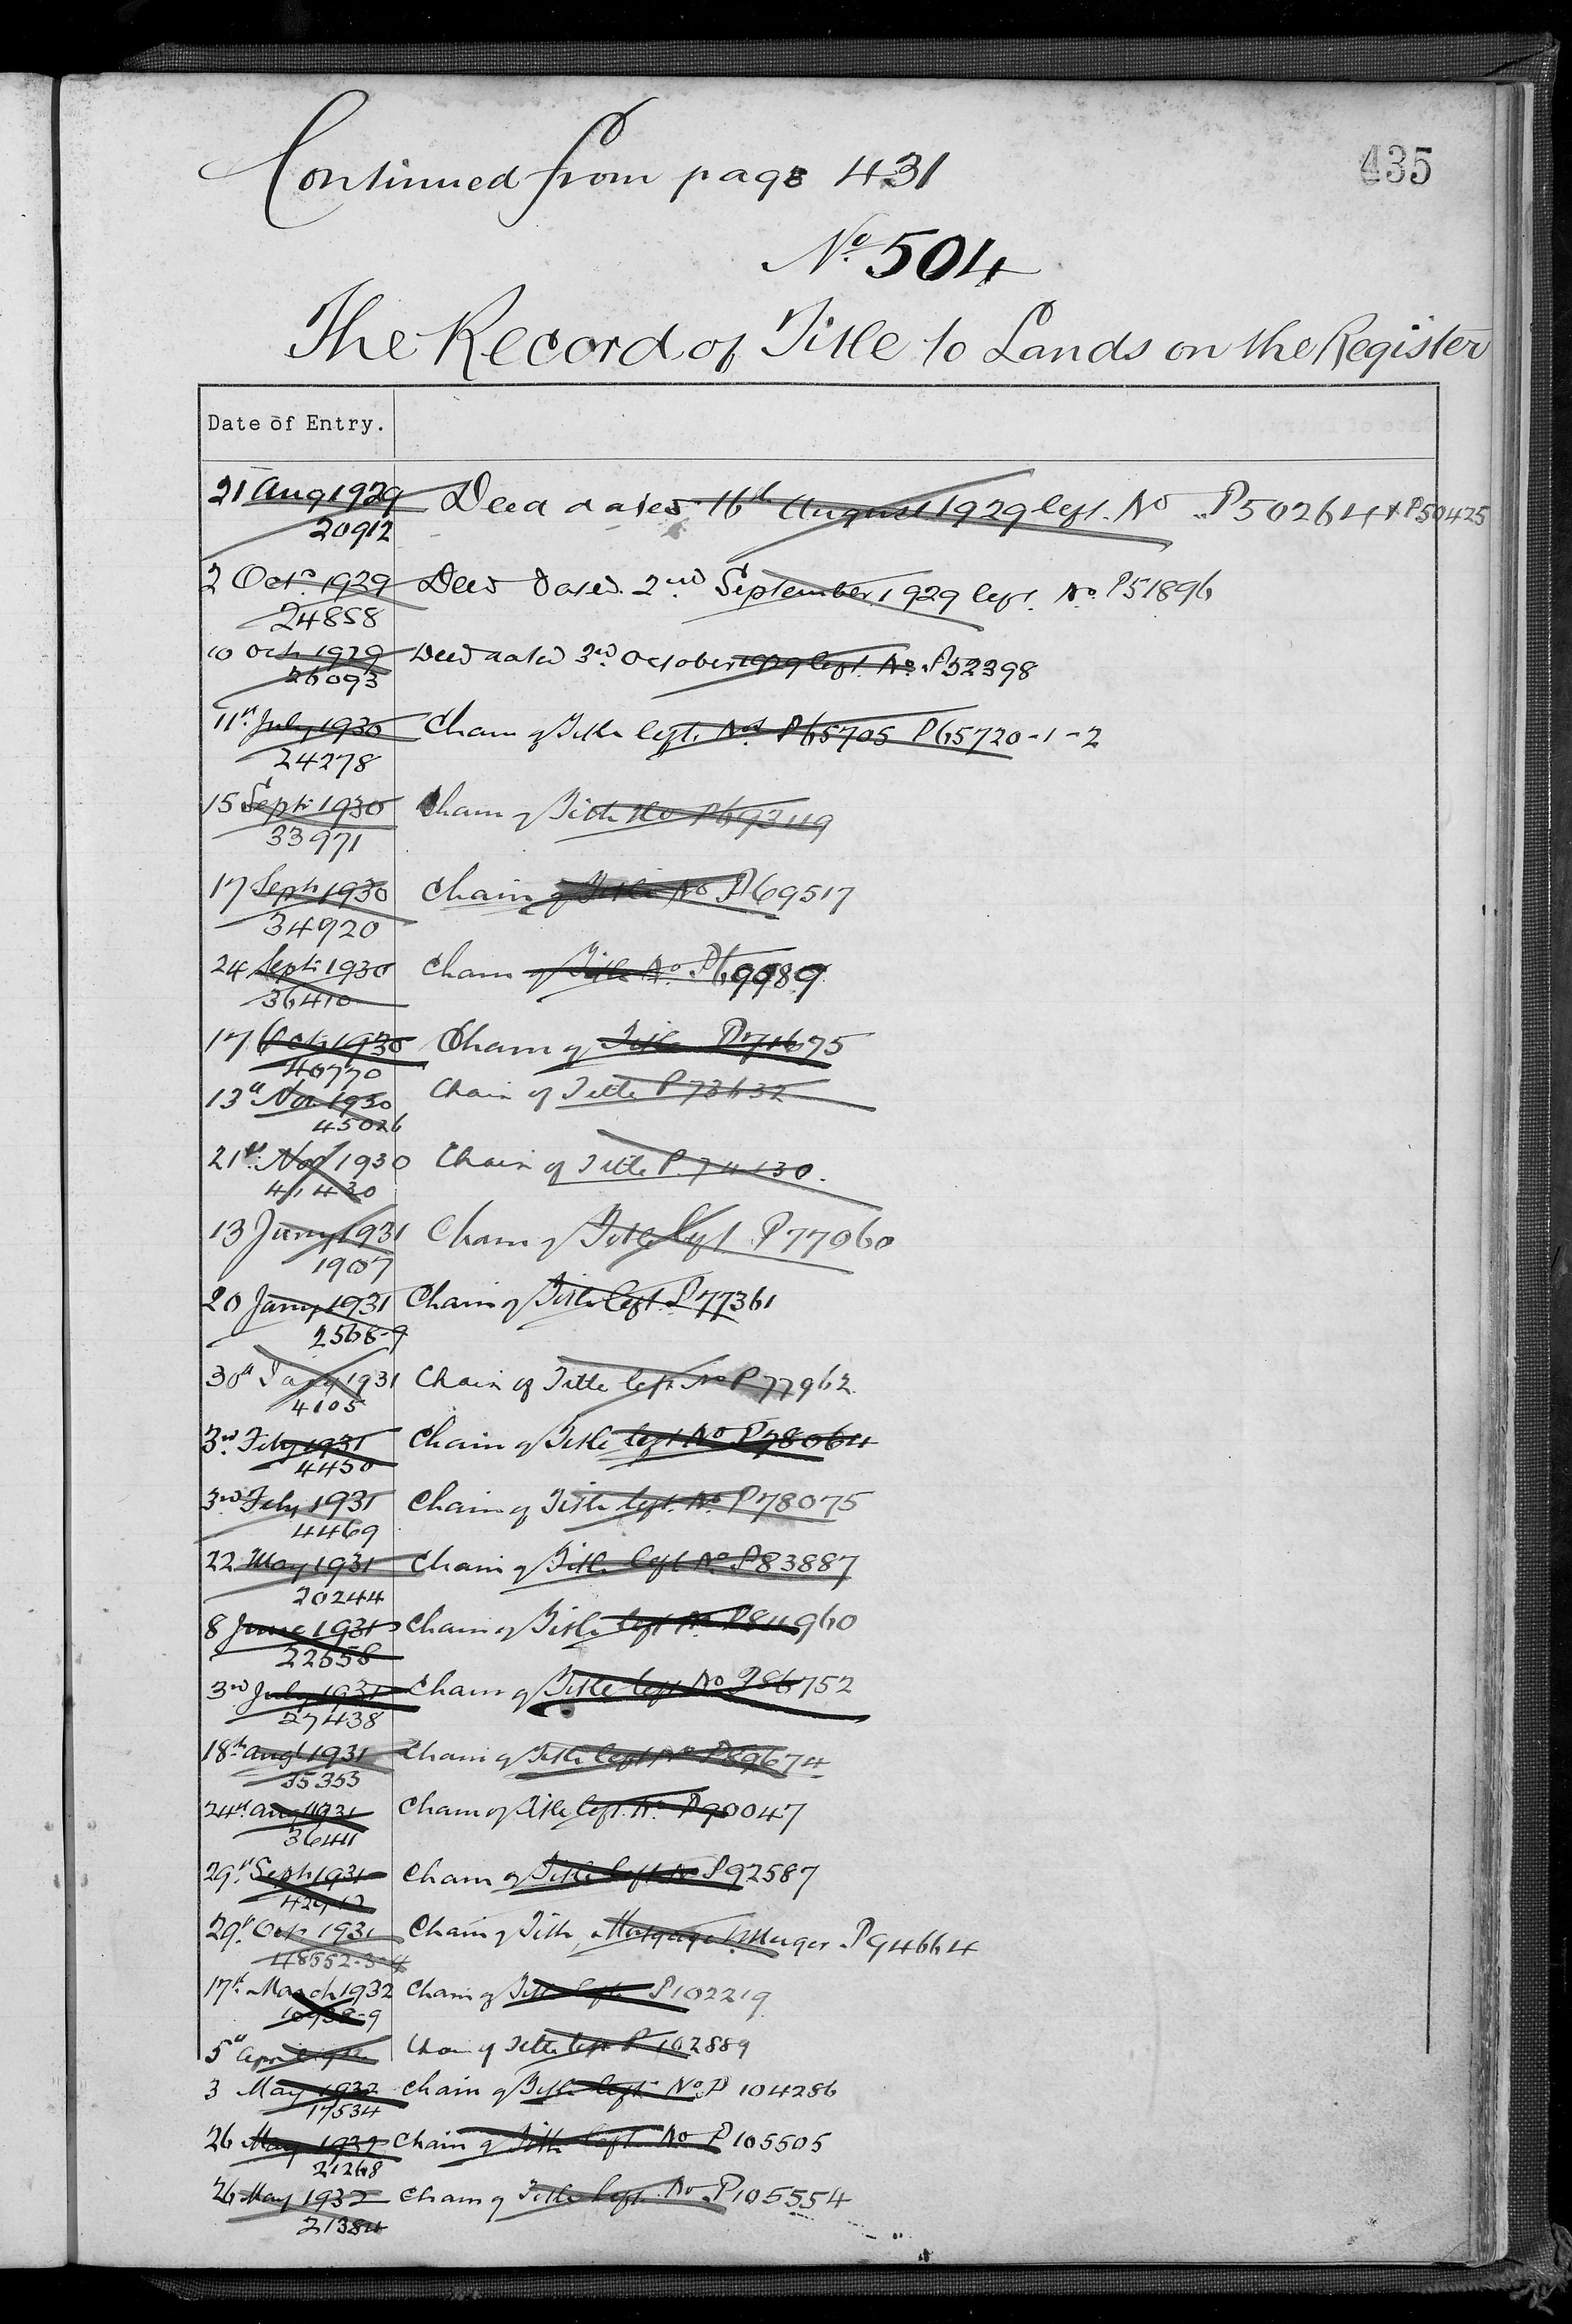 435
Continued from page 431
No. 504
The Record of Title to Lands on the Register
Date of Entry.
21 Aug 1929 Deed dated 16th August 1929 left. No P50264 & P50425
20912
2 Octr. 1929 Deed dated 2nd September 1929 left. No. P51896
24858
10 Oct. 1929 Deed dated 3rd October 1929 left. No. P52398
26093
11th July 1930 Chain of Title left. Nos P65705 P65720-1-2
24278
15 Sept. 1930 Chain of Title No
33971
17 Sept. 1930 Chain of Title No P69517
34920
24 Sept. 1930 Chain of Title No. P69989
36410
17 Oct. 1930 Chain of Title P71675
40770
13th Nov 1930 Chain of Title P73632
45026
21st Nov 1930 Chain of Title P.74130.
13 Jany 1931 Chain of Title left P77060
1907
20 Jany 1931 Chain of Title left. P77361
2568-9
30th Jany 1931 Chain of Title left No P77962
4105
3rd Feby 1931 Chain of Title left No P78064
4450
3rd Feby 1931 Chain of Title left. No. P78075
4469
22 May 1931 Chain of Title left No. P83887
20244
8 June 1931 Chain of Title left No. P84960
22658
3rd July 1931 Chain of Title left No P86752
27438
18th Augt 1931 Chain of Title left No P89674
35353
24th Augt 1931 Chain of Title left. No. P90047
29th Sept. 1931 Chain of Title left No P92587
42912
29th Oct. 1931 Chain of Title, Mortgage & Merger P94664
48552-3-4
17th March 1932 Chain of Title left P102219
5th April 1932 Chain of Title left P102889
3 May 1932 Chain of Title left No. P 104286
17534
26 May 1932 Chain of Title left. No P105505
21268
26 May 1932 Chain of Title left. No P105554
21384